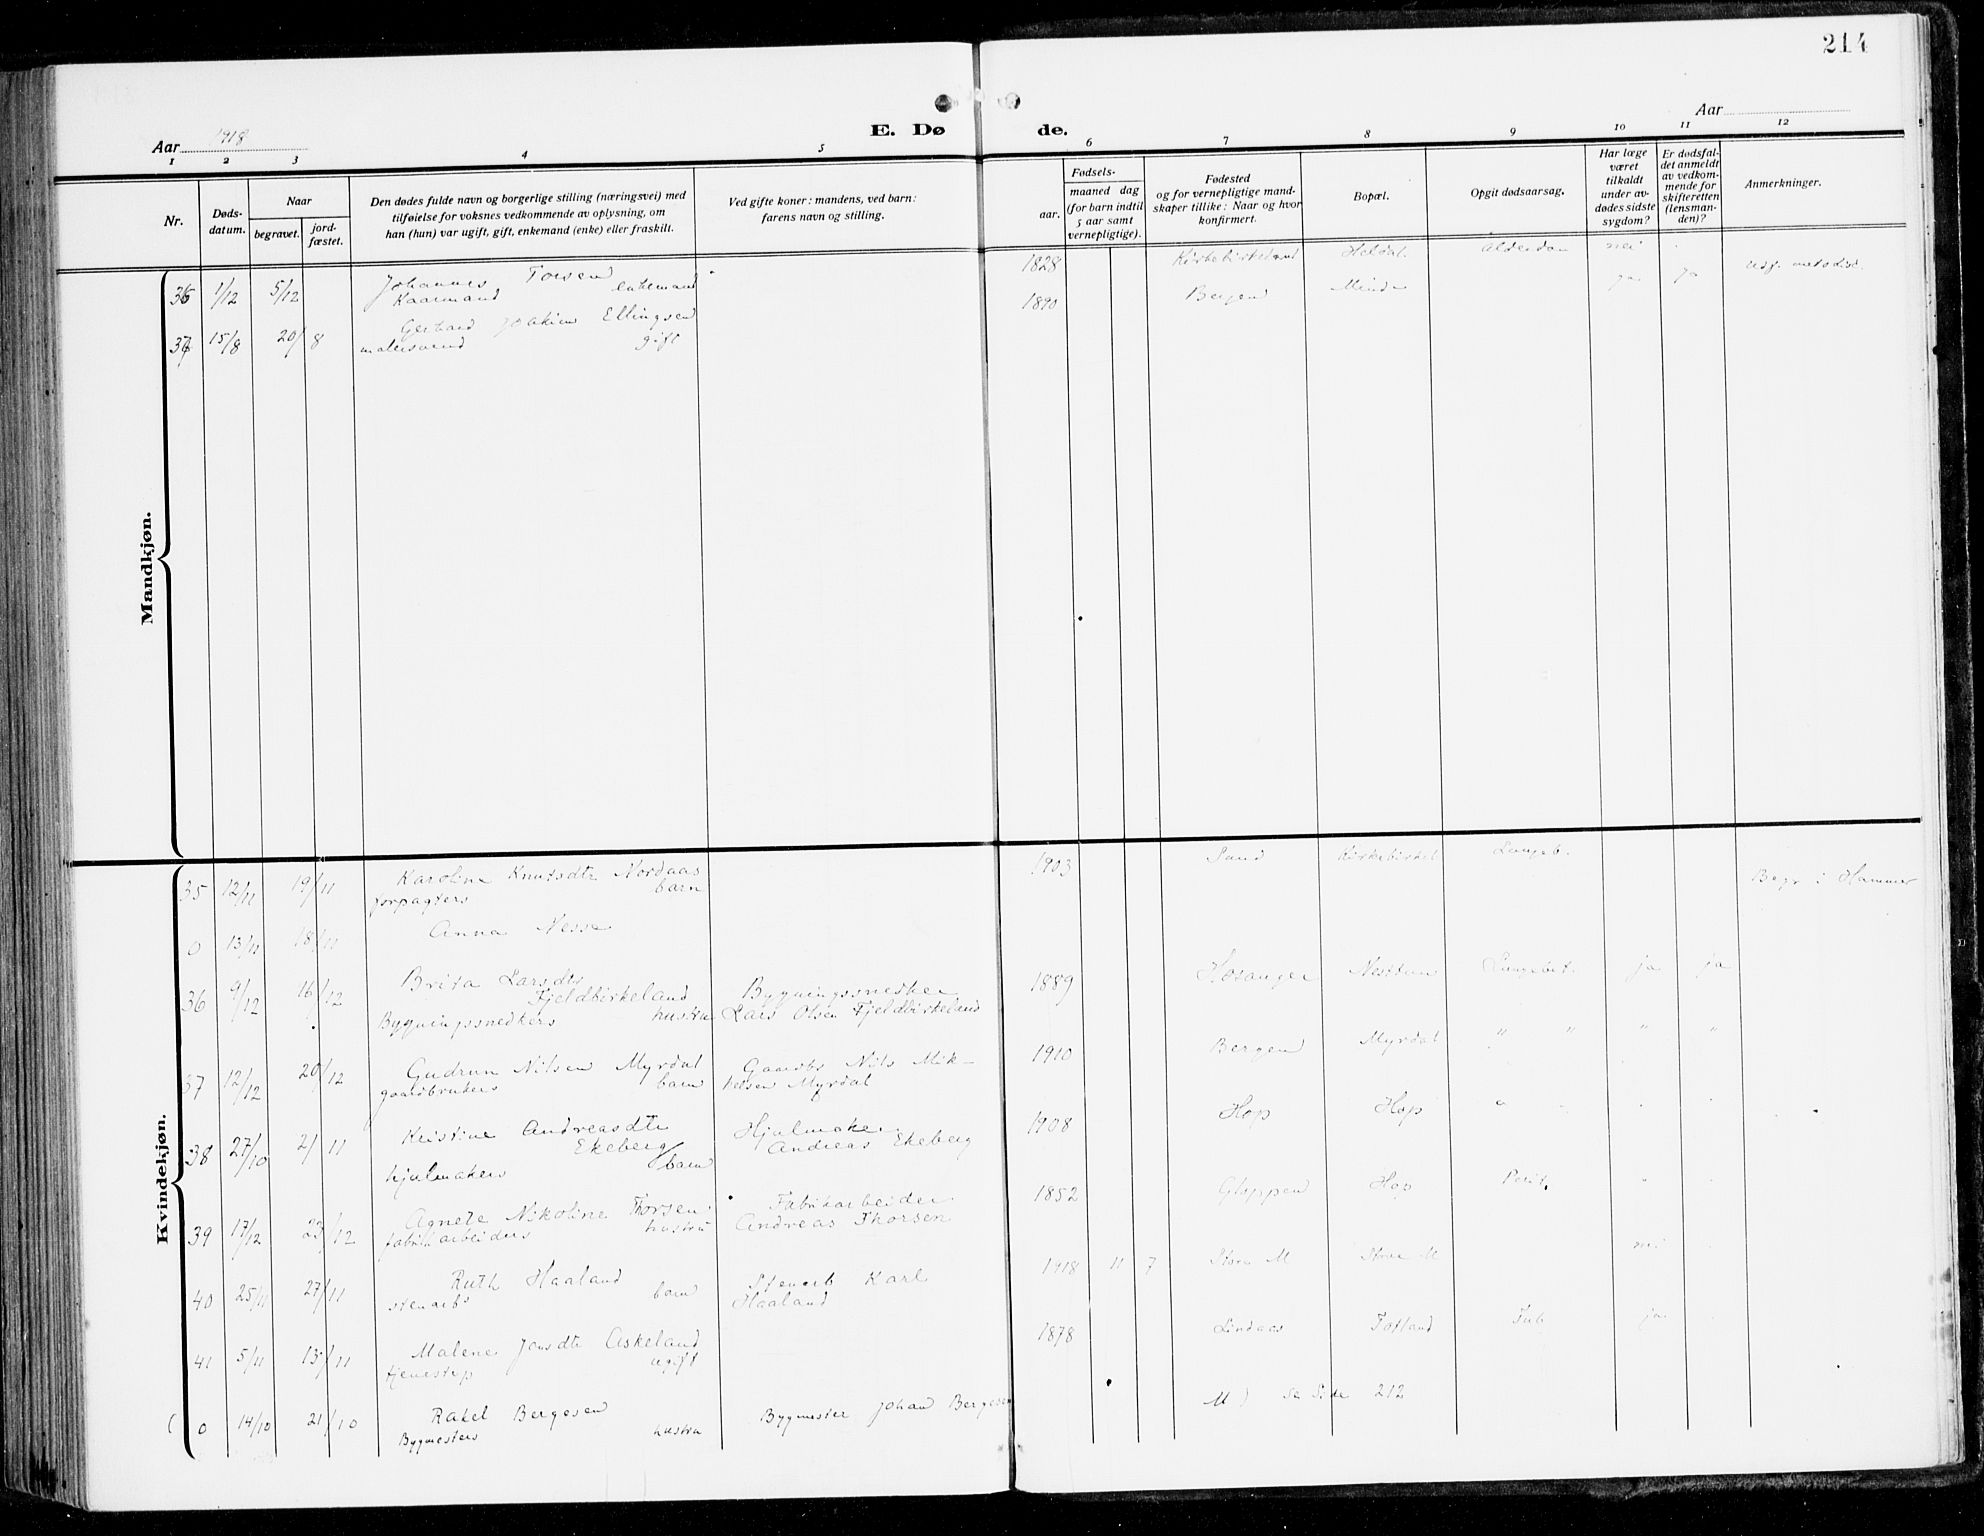 214
Aar 1918
E. Dø de.
Aar
1 2 3 4 5 6 7 8 9 10 11 12
Nr.
Døds-
datum.
Naar
begravet.
jord-
fæstet.
Den dødes fulde navn og borgerlige stilling (næringsvei) med
tilføielse for voksnes vedkommende av oplysning, om
han (hun) var ugift, gift, enkemand (enke) eller fraskilt.
Ved gifte koner: mandens, ved barn:
farens navn og stilling.
Fødsels-
aar.
maaned dag
(for barn indtil
5 aar samt
vernepligtige).
Fødested
og for vernepligtige mand-
skaper tillike: Naar og hvor
konfirmert.
Bopæl.
Opgit dødsaarsag.
Har læge
været
tilkaldt
under av-
dødes sidste
sygdom?
Er dødsfal-
det anmeldt
av vedkom-
mende for
skifteretten
(lensman-
den)?
Anmerkninger.
Mandkjøn.
36 1/12 5/12 Johannes Torsen 1828 Kirkebirkeland Heldal Alderdom nei
Kaarmand enkemand
37 15/8 20/8 Gerhard Joakim Ellingsen 1890 Bergen Minde ja ja Udg. metodist.
malersvend gift
Kvindekjøn.
35 12/11 19/11 Karoline Knutsdtr Nordaas 1903 Sand Kirkebirkel Lungeb.
forpagters barn
0 13/11 18/11 Anna Nesse Begr i Hammer
36 9/12 16/12 Brita Larsdtr 1889 Hosanger Nesttun Lungebet. ja ja
Fjeldbirkeland Bygningssnedker
Bygningssnedkers hustru Lars Olsen Fjeldbirkeland
37 12/12 20/12 Gudrun Nilsen Myrdal Gaardbr Nils Mik- 1910 Bergen Myrdal " " " "
gaardbrukers barn kelsen Myrdal
38 27/10 2/11 Kristine Andreasdtr Hjulmaker 1908 Hop Hop "
Ekeberg Andreas Ekeberg
hjulmakers barn
39 17/12 23/12 Agnete Nikoline Thorsen Fabrikarbeider 1852 Gloppen Hop Perit.
fabrikarbeiders hustru Andreas Thorsen
40 25/11 27/11 Ruth Haaland Stenarb Karl 1918 11 7 Store M Store M nei
stenarbs barn Haaland
41 5/11 13/11 Malene Jonsdtr Askeland 1878 Lindaas Totland Tub ja
tjenestep ugift
( 0 14/10 21/10 Rakel Bergesen Bygmester Johan Bergesen M ) se Side 212
Bygmesters hustru